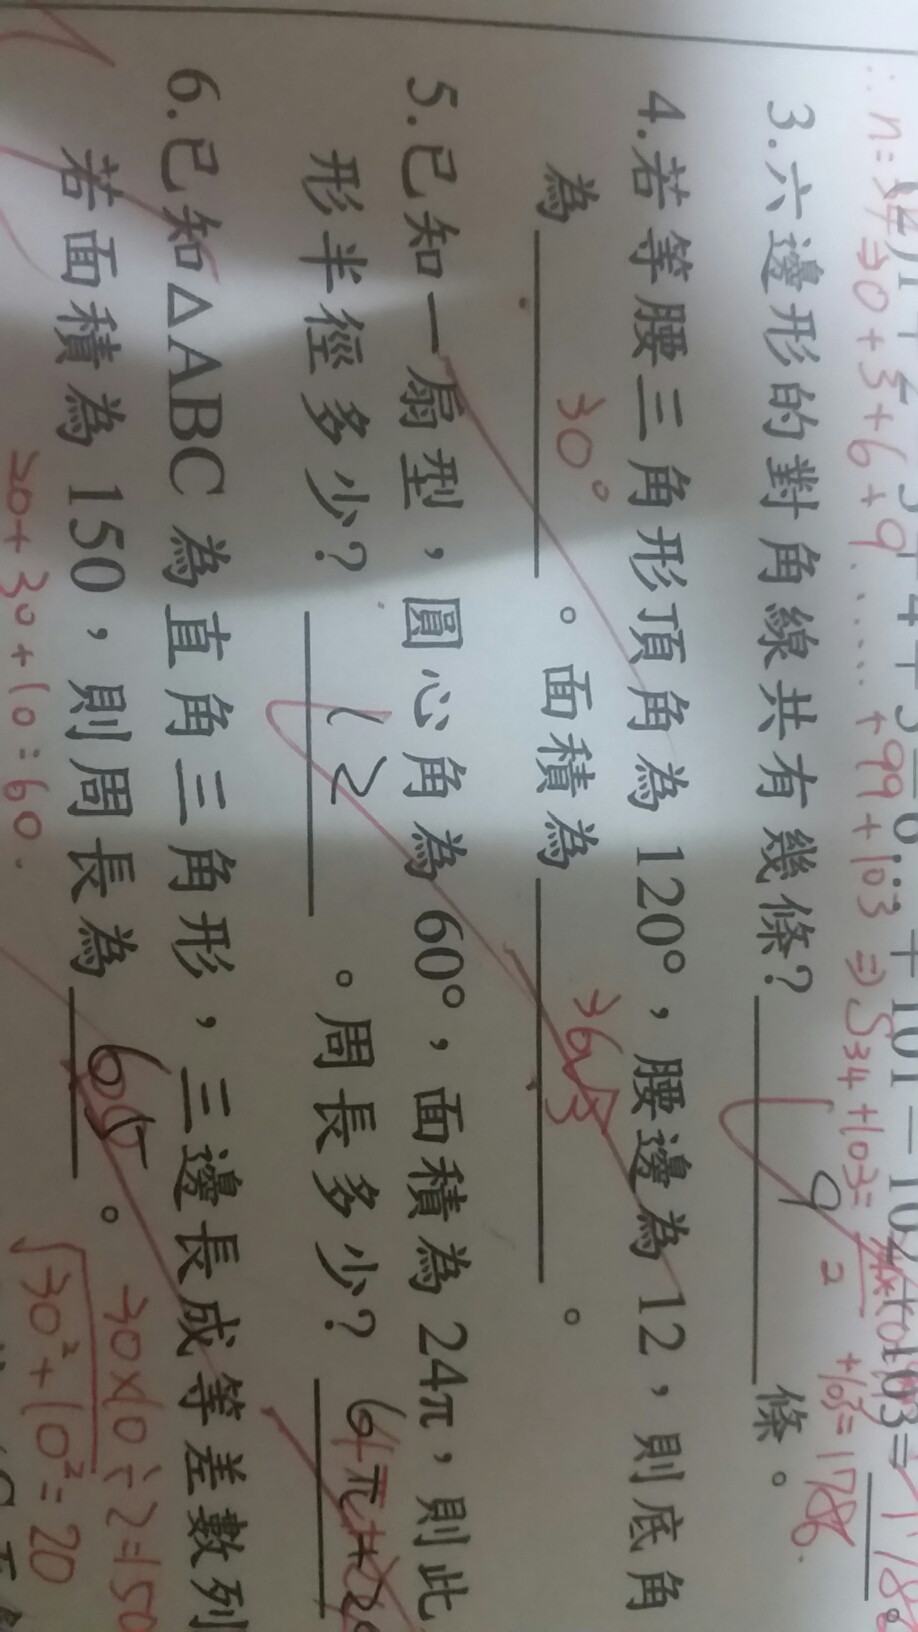 ∴n=34⇒0+3+6+9……+99+103⇒S34+103=
+103=1788.
3.六邊形的對角線共有幾條? 9 條。
4.若等腰三角形頂角為 120°,腰邊為 12,則底角
為 30° 。面積為 36√3 。
5.已知一扇型,圓心角為 60°,面積為 24π,則此
形半徑多少? 12 。周長多少?
6.已知△ABC 為直角三角形,三邊長成等差數列
若面積為 150,則周長為 60 。
20+30+10=60.
30×10÷2=150
√30²+10²=20